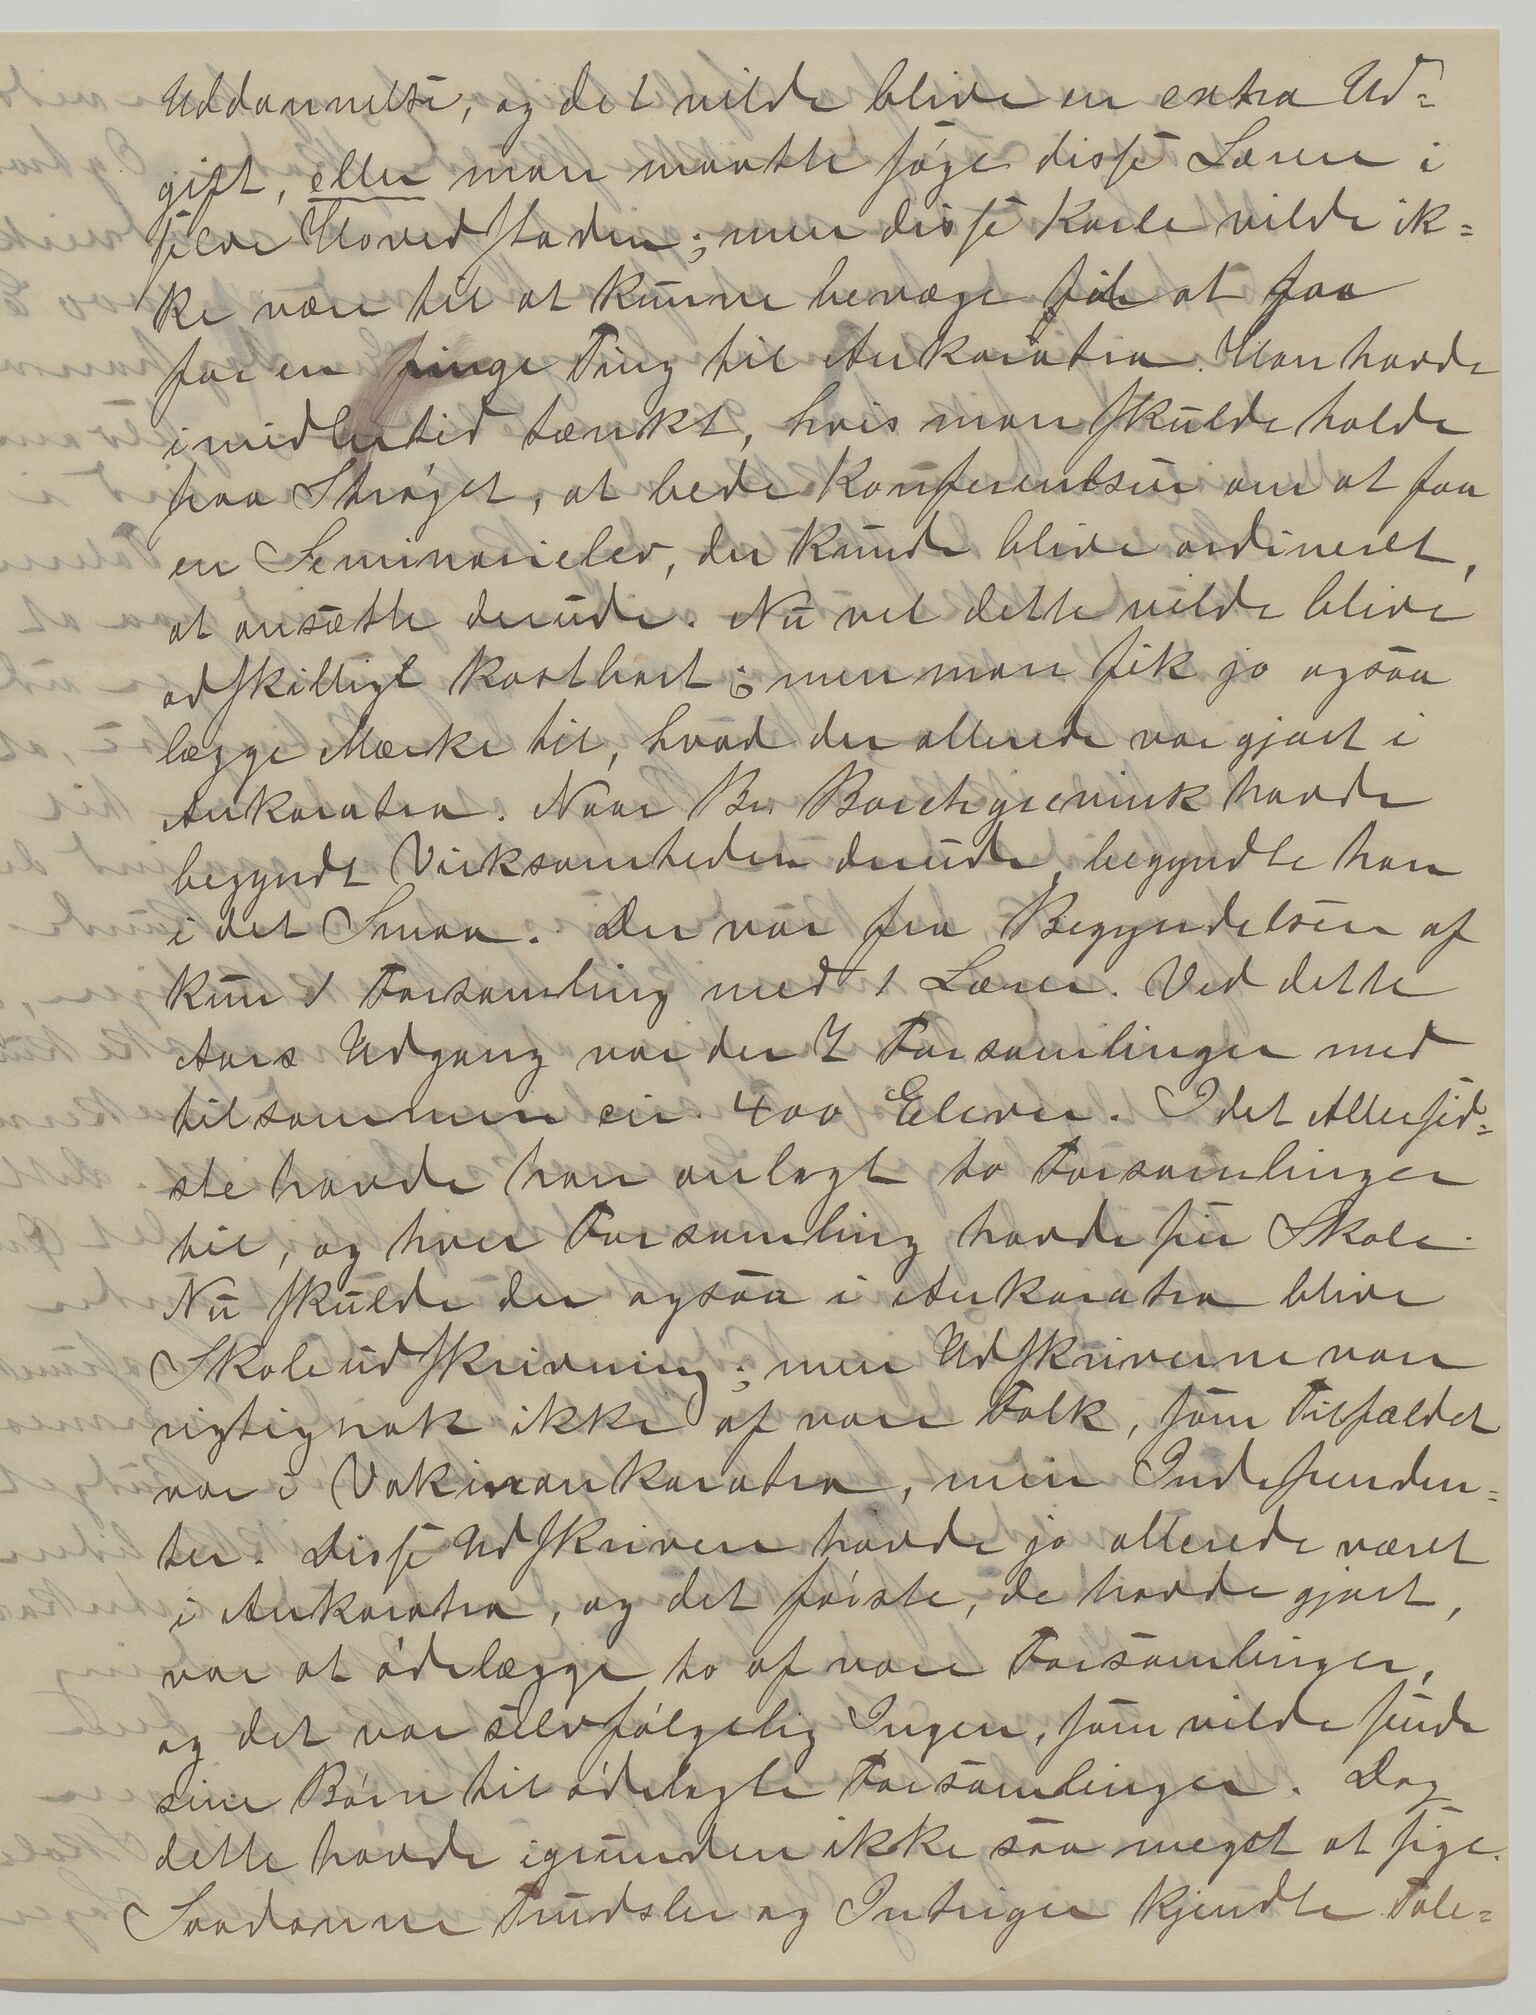 Uddannelse, og det vilde blive en extra Ud=
gift, eller man maatte søge disse Lærere i
selve Hovedstaden; men disse Karle vilde ik=
ke være til at kunne bevæge til at faa
for en ringe Ting til Ankaratra. Man havde
imidlertid tænkt, hvis man skulde holde
paa Strøget, at bede Konferentsen om at faa
en Seminarielev, der kunde blive ordineret,
at ansætte derude. Nu vel dette vilde blive
adskilligt kostbart; men man fik jo ogsaa
lægge Mærke til, hvad der allerede var gjort i
Ankaratra. Naar Br. Borchgrevink havde
begyndt Virksomheden derude, begyndte han
i det Smaa. Der var fra Begyndelsen af
kun 1 Forsamling med 1 Lærer. Ved dette
Aars Udgang var der 7 Forsamlinger med
tilsammen cir. 400 Elever. I det Allersid=
ste havde han anlagt to Forsamlinger
til, og hver Forsamling havde sin Skole.
Nu skulde der ogsaa i Ankaratra blive
Skoleudskrivning; men Udskriverne vare
rigtignok ikke af vore Folk, som Tilfældet
var i Vakinankaratra, men Independen=
ter. Disse Udskrivere havde jo allerede været
i Ankaratra, og det første, de havde gjort,
var at ødelægge to af vore Forsamlinger,
og det var selvfølgelig Ingen, som vilde sende
sine Børn til ødelagte Forsamlinger. Dog
dette havde igrunden ikke saa meget at sige.
Saadanne Trudsler og Intriger kjendte Tale=